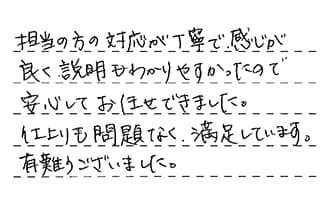 担当の方の対応が丁寧で感じが
良く説明もわかりやすかったので
安心してお任せできました。
仕上りも問題なく、満足しています。
有難うございました。